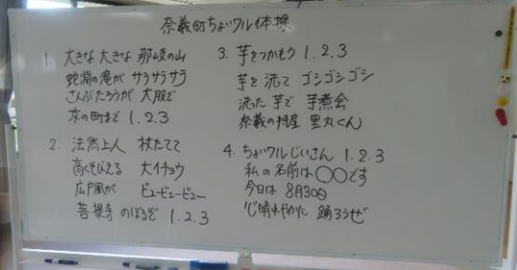 奈義町ちょいワル体操
1. 大きな 大きな 那岐の山
蛇淵の滝が サラサラサラ
さんぶたろうが 大股で
京の町まで 1.2.3
2. 法然上人 杖たてて
高くそびえる 大イチョウ
広戸風が ビュービュービュー
菩提寺 のぼるぞ 1.2.3
3. 芋をつかもう 1.2.3
芋を洗って ゴシゴシゴシ
洗た芋で 芋煮会
奈義の特産 里丸くん
4. ちょいワルじいさん 1.2.3
私の名前は〇〇です
今日は 8月30日
心晴れやかに 踊ろうぜ